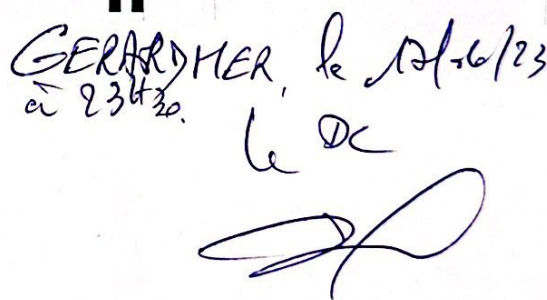 GERARDMER, le 17/06/23
à 23H30.
le DC